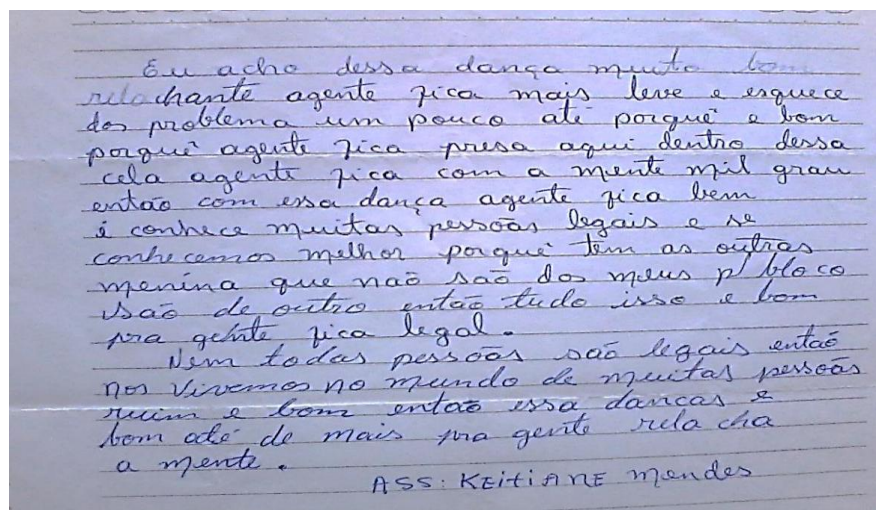 Eu acho dessa dança muito bom
relachante agente fica mais leve e esquece
dos problema um pouco até porquê e bom
porquê agente fica presa aqui dentro dessa
cela agente fica com a mente mil grau
então com essa dança agente fica bem
é conhece muitas pessoas legais e se
conhecemos melhor porquê tem as outras
menina que não são dos meus p/ bloco
são de outro então tudo isso e bom
pra gente fica legal.
Nem todas pessoas são legais então
nos vivemos no mundo de muitas pessoas
ruim e bom então essa dancas e
bom até de mais pra gente rela cha
a mente.
ASS: KEitiANE Mendes